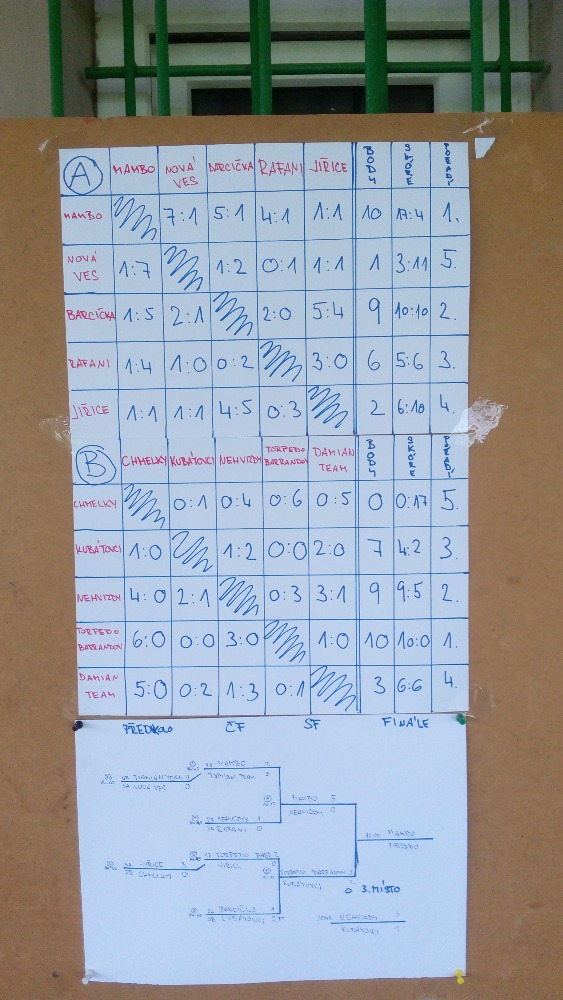 A MAMBO NOVÁ VES BARCIČKA RAFANI JIŘICE BODY SKÓRE POŘADÍ
MAMBO 7:1 5:1 4:1 1:1 10 17:4 1.
NOVÁ VES 1:7 1:2 0:1 1:1 1 3:11 5.
BARCIČKA 1:5 2:1 2:0 5:4 9 10:10 2.
RAFANI 1:4 1:0 0:2 3:0 6 5:6 3.
JIŘICE 1:1 1:1 4:5 0:3 2 6:10 4.
B CHMELKY KUBÁTOVCI NEHVIZDY TORPEDO BARRANDOV DAMIAN TEAM BODY SKÓRE POŘADÍ
CHMELKY 0:1 0:4 0:6 0:5 0 0:17 5.
KUBÁTOVCI 1:0 1:2 0:0 2:0 7 4:2 3.
NEHVIZDY 4:0 2:1 0:3 3:1 9 9:5 2.
TORPEDO BARRANDOV 6:0 0:0 3:0 1:0 10 10:0 1.
DAMIAN TEAM 5:0 0:2 1:3 0:1 3 6:6 4.
PŘEDKOLO ČF SF FINÁLE
MAMBO
DAMIAN TEAM
DAMIAN TEAM
NOVÁ VES 0
MAMBO 5
NEHVIZDY 0
NEHVIZDY 1
RAFANI 0
MAMBO
TORPEDO
JIŘICE
CHMELKY 0
TORPEDO
JIŘICE
TORPEDO BARRANDOV
KUBÁTOVCI
0 3. MÍSTO
KUBÁTOVCI
NEHVIZDY 3
KUBÁTOVCI 1